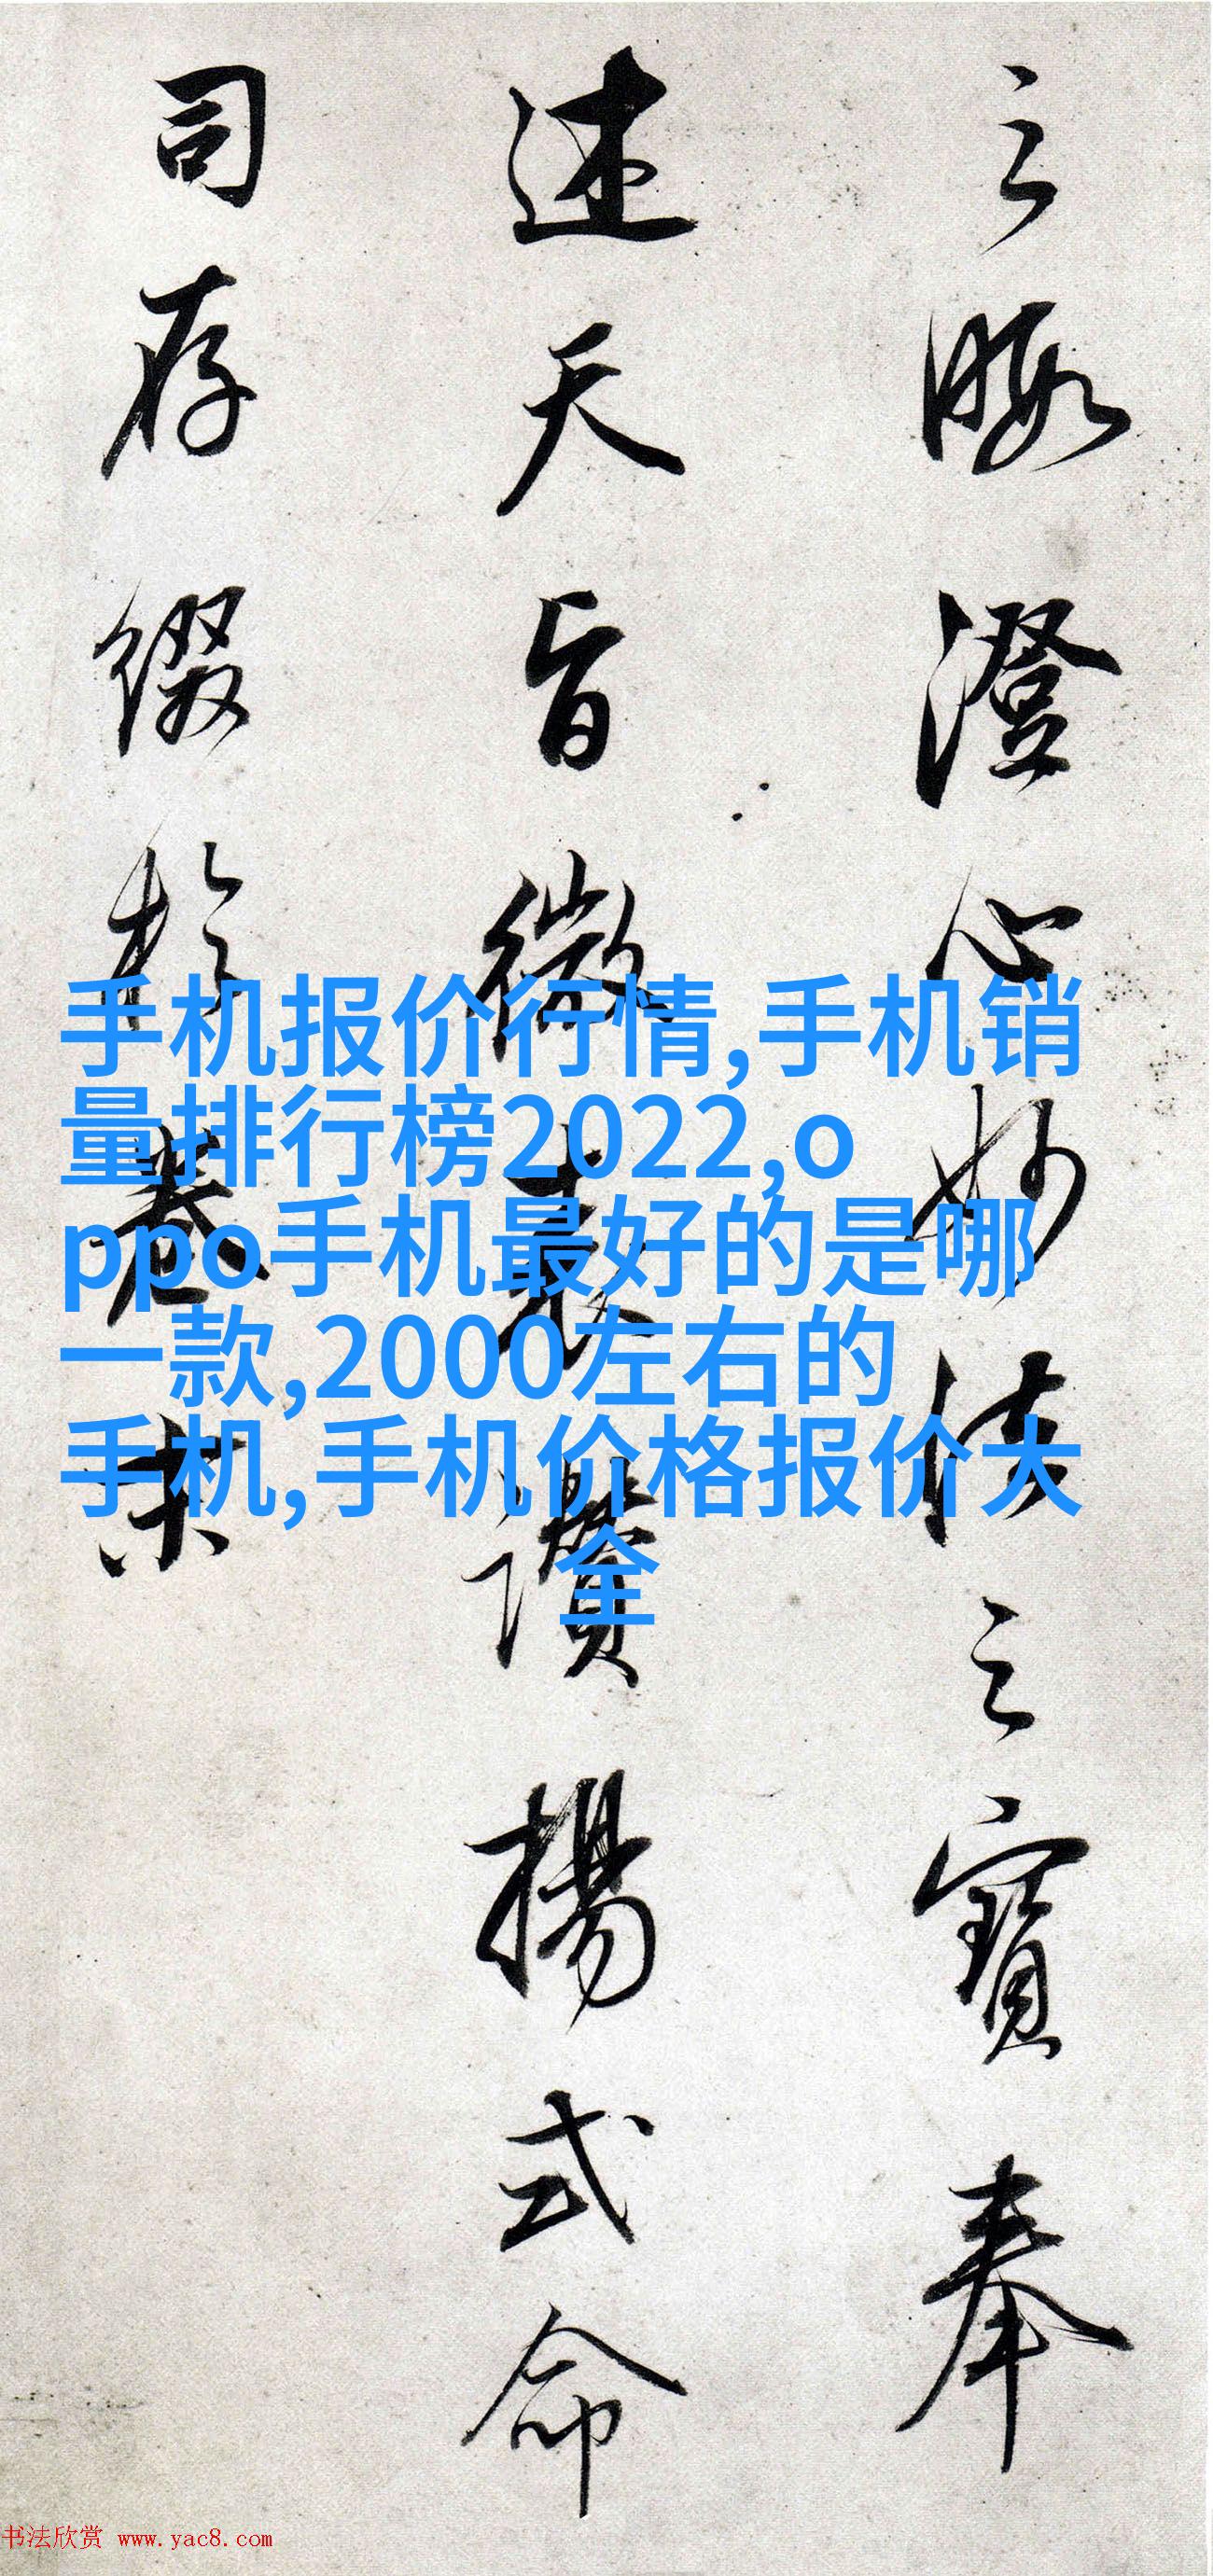 之暇澄心妙法之寶奉
述天旨微表讚揚式命
司存缀於卷末
手机报价行情,手机销
量排行榜2022,o
ppo手机最好的是哪
一款,2000左右的
手机,手机价格报价大
全
书法欣赏 www.yac8.com